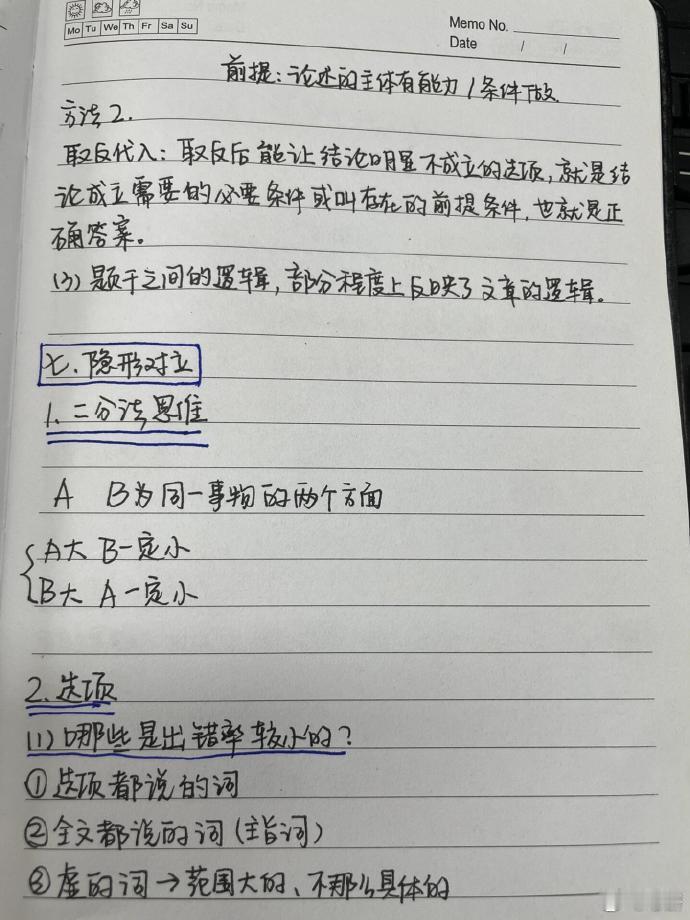 Mo Tu We Th Fr Sa Su
Memo No.
Date / /
前提：论述的主体有能力/条件下故.
方法2.
取反代入：取反后能让结论明显不成立的选项，就是结
论成立需要的必要条件或叫存在的前提条件，也就是正
确答案。
(3) 题干之间的逻辑，部分程度上反映了文章的逻辑。
七.隐形对立
1.二分法思维
A B为同一事物的两个方面
A大 B一定小
B大 A一定小
2.选项
(1) 哪些是出错率较小的？
①选项都说的词
②全文都说的词(主旨词)
③虚的词→范围大的、不那么具体的